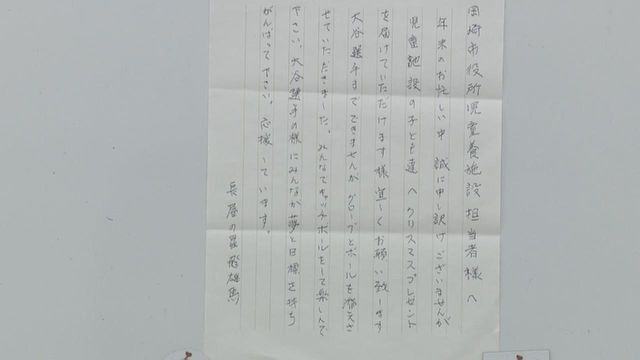 岡崎市役所児童養施設担当者様へ
年末のお忙しい中 誠に申し訳けございませんが
児童施設の子ども達へクリスマスプレゼント
を届けていただけます様宜しくお願い致します
大谷選手までできませんがグローブとボールを揃えさ
せていただきました。みんなでキャッチボールをして楽しんで
下さい。大谷選手の様にみんなが夢と目標を持ち
がんばって下さい。応援しています。
長屋の星飛雄馬